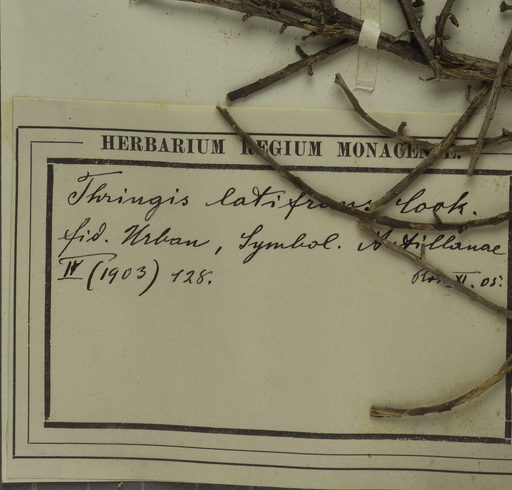 HERBARIUM REGIUM MONACENSE.
Thringis latifrons Cook.
fid. Urban, Symbol. Antillanae
IV (1903) 128.
XI. 05.